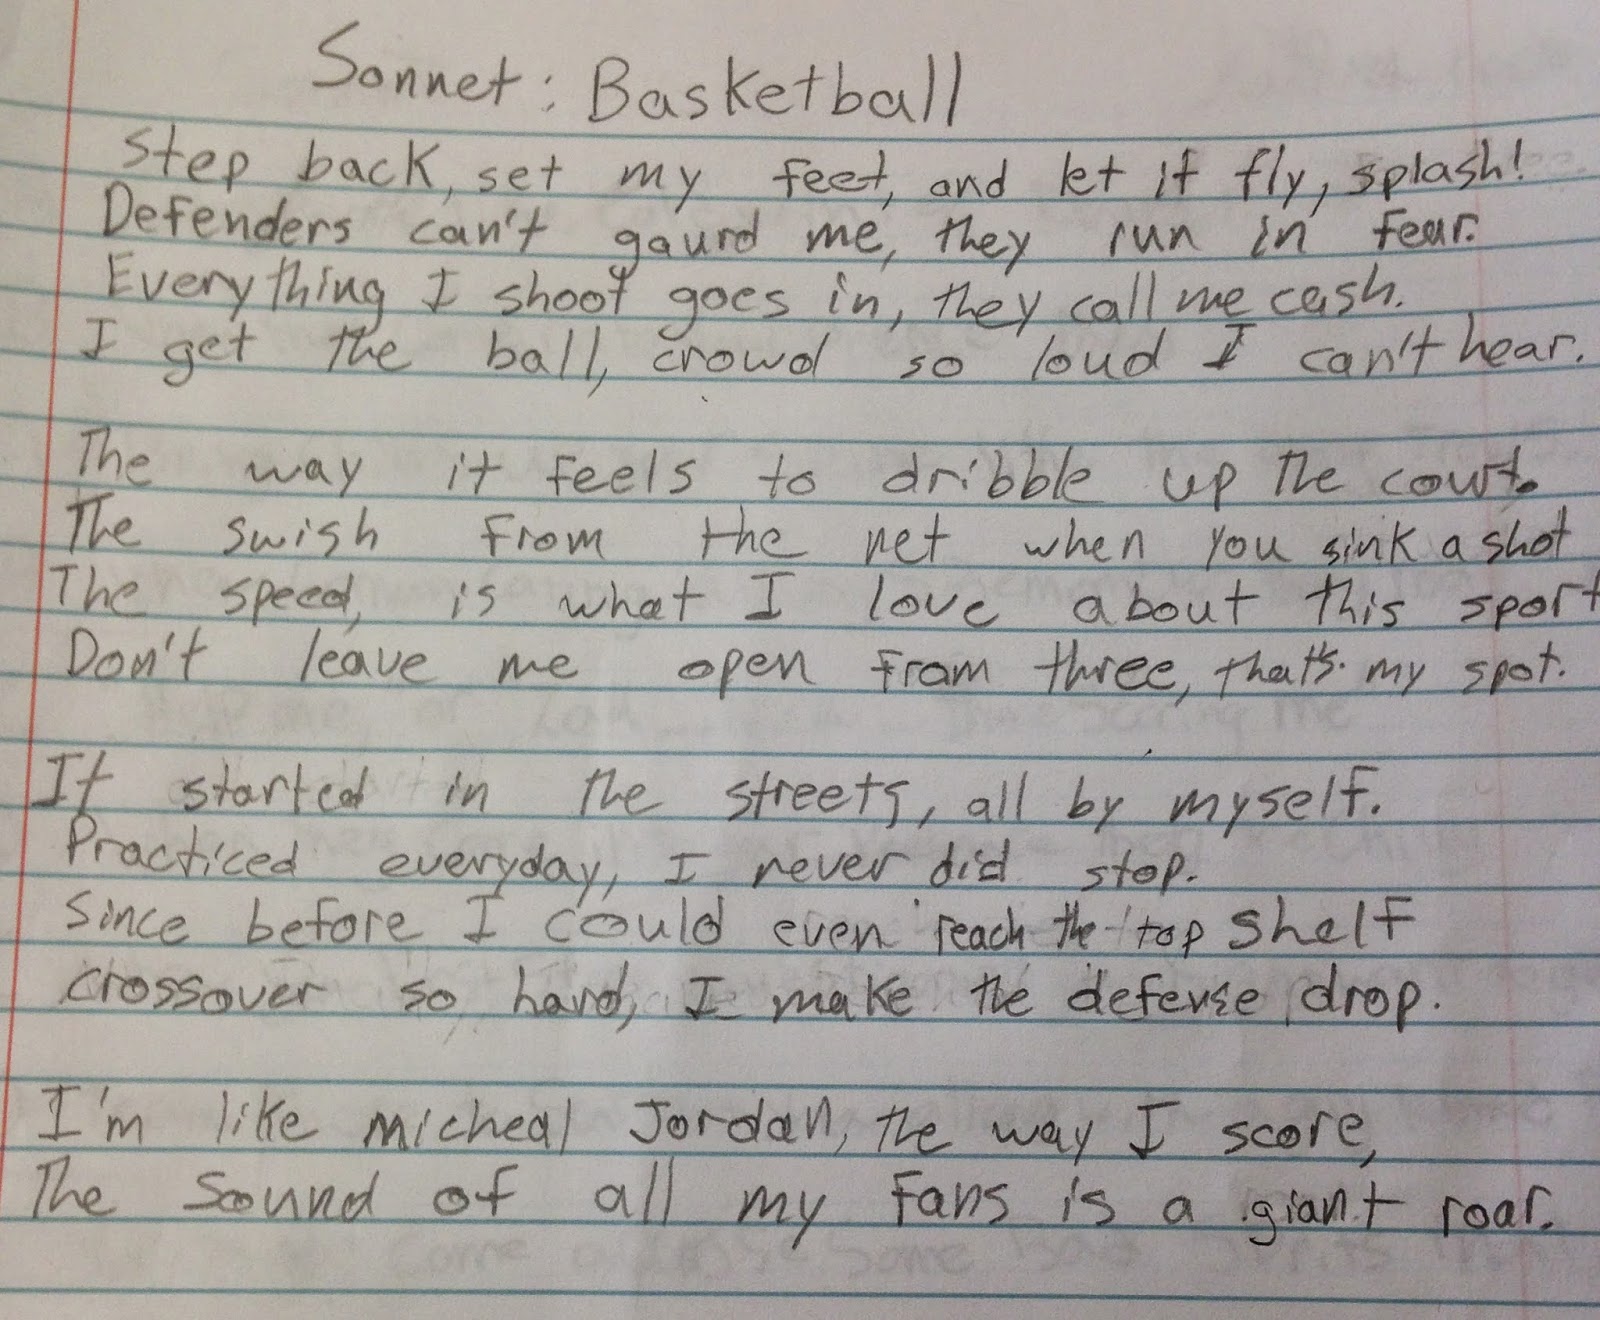 Sonnet: Basketball
Step back, set my feet, and let it fly, splash!
Defenders can't gaurd me, they run in fear.
Everything I shoot goes in, they call me cash.
I get the ball, crowd so loud I can't hear.
The way it feels to dribble up the court.
The swish from the net when you sink a shot
The speed, is what I love about this sport
Don't leave me open from three, that's my spot.
It started in the streets, all by myself.
Practiced everyday, I never did stop.
Since before I could even reach the top shelf
crossover so hard, I make the defense drop.
I'm like micheal Jordan, the way I score,
The sound of all my fans is a giant roar.